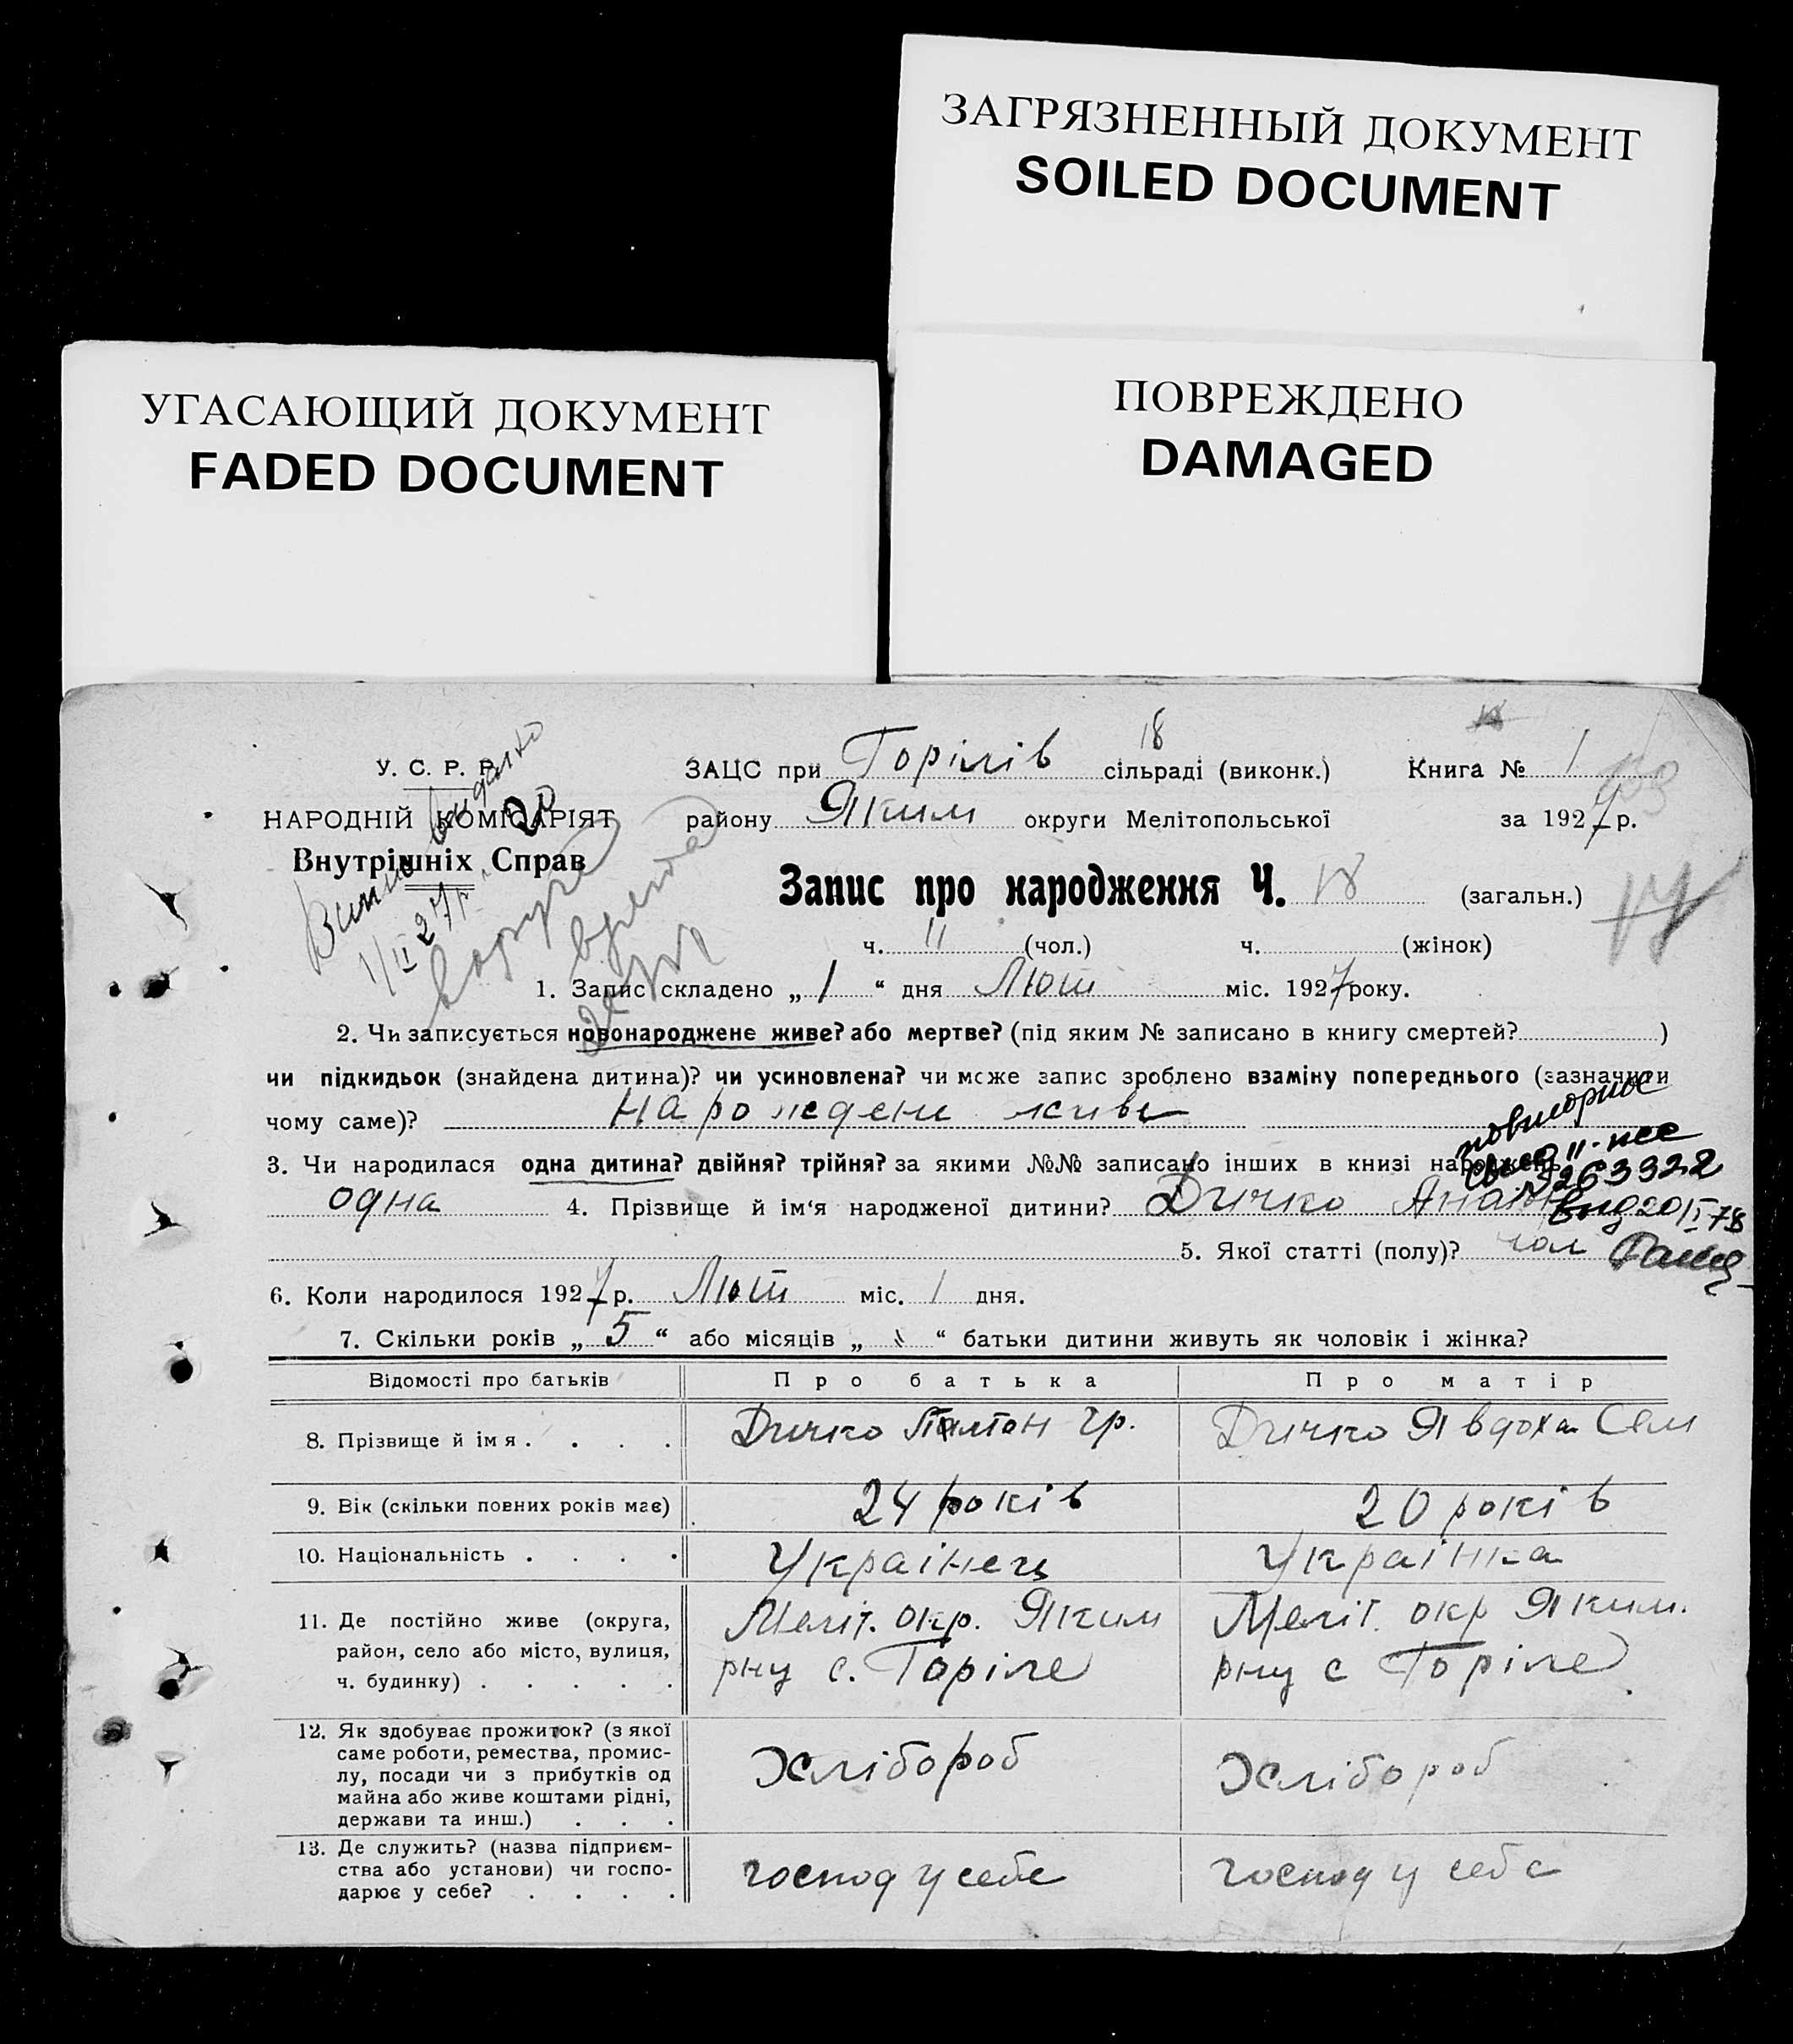 ЗАГРЯЗНЕННЫЙ ДОКУМЕНТ
SOILED DOCUMENT
УГАСАЮЩИЙ ДОКУМЕНТ
FADED DOCUMENT
ПОВРЕЖДЕНО
DAMAGED
У. С. Р. Р.
НАРОДНІЙ КОМІСАРІЯТ
Внутрішніх Справ
18
ЗАЦС при Горілів сільраді (виконк.) Книга № 1
району Яким округи Мелітопольської за 1927 р.
Запис про народження Ч. 18 (загальн.)
17
ч. 11 (чол.) ч. (жінок)
1/II 27 р.
1. Запис складено „ 1 “ дня Лют міс. 1927 року.
2. Чи записується новонароджене живе? або мертве? (під яким № записано в книгу смертей? )
чи підкидьок (знайдена дитина)? чи усиновлена? чи може запис зроблено взаміну попереднього (зазначити
чому саме)? Нарождени живе
повторное
3. Чи народилася одна дитина? двійня? трійня? за якими №№ записано інших в книзі народжень
263322
одна 4. Прізвище й ім‘я народженої дитини? Дичко
20/I-78
5. Якої статті (полу)? чол
6. Коли народилося 1927 р. Лют міс. 1 дня.
7. Скільки років „ 5 “ або місяців „ “ батьки дитини живуть як чоловік і жінка?
Відомості про батьків Про батька Про матір
8. Прізвище й імя . . . . Дичко гр. Дичко Явдоха Сем
9. Вік (скільки повних років має) 24 років 20 років
10. Національність . . . . Украінец Украінка
11. Де постійно живе (округа, Меліт. окр. Яким Меліт. окр Яким.
район, село або місто, вулиця, рну с. Горіле рну с Горіле
ч. будинку) . . . . .
12. Як здобуває прожиток? (з якої
саме роботи, ремества, промис-
лу, посади чи з прибутків од Хлібороб Хлібороб
майна або живе коштами рідні,
держави та инш.) . . .
13. Де служить? (назва підприєм-
ства або установи) чи госпо- господ у себе господ у себе
дарює у себе? . . . .